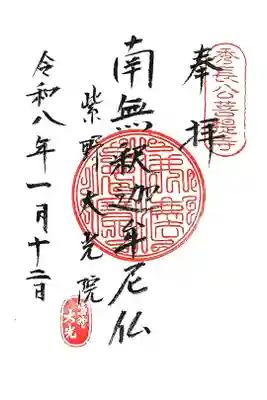 秀長公菩提寺
奉拝
南無釈迦牟尼仏
紫野大光院
令和八年一月十二日
大光